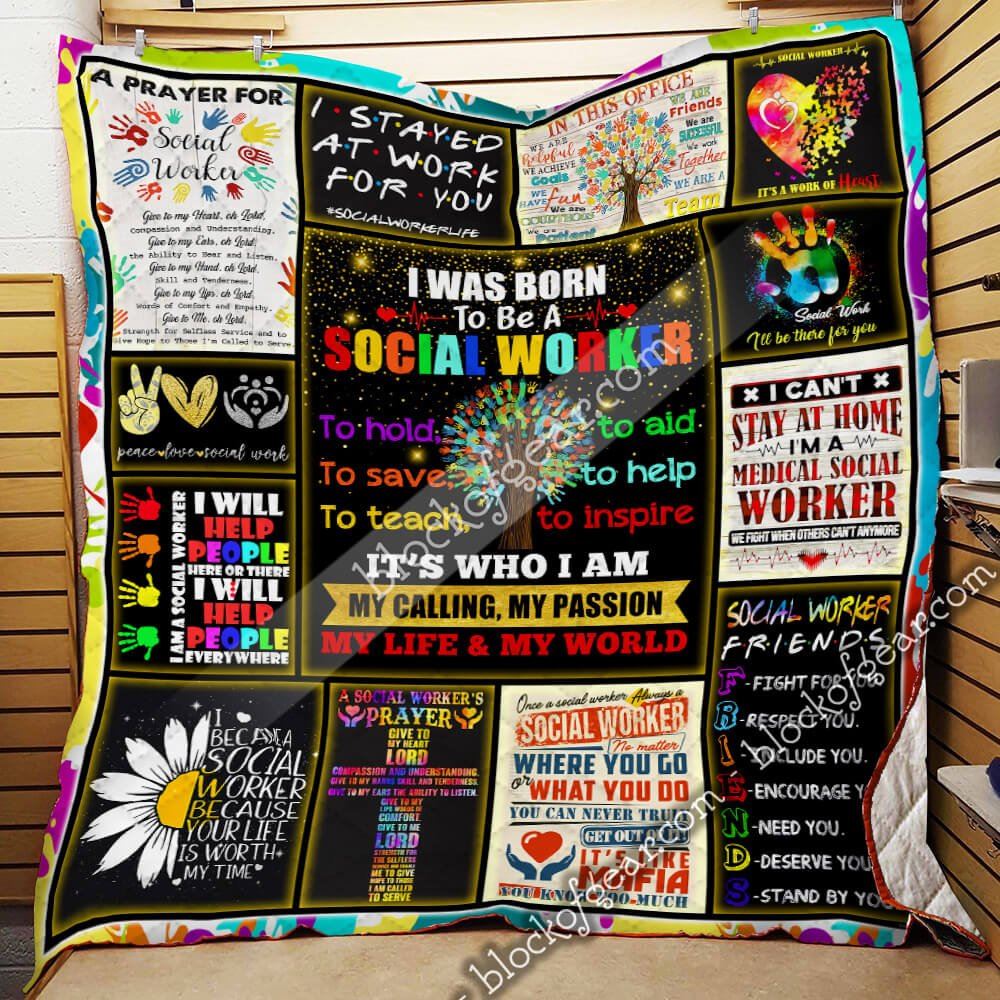 A PRAYER FOR
Social
Worker
Give to my Heart, oh Lord,
Compassion and Understanding.
Give to my Ears, oh Lord,
the Ability to Hear and Listen.
Give to my Hand, oh Lord,
Skill and Tenderness.
Give to my Lips, oh Lord,
Words of Comfort and Empathy.
Give to Me, oh Lord,
Strength for Selfless Service and to
Give Hope to Those I'm Called to Serve
I STAYED
AT WORK
FOR YOU
#SOCIALWORKERLIFE
IN THIS OFFICE
WE ARE
Helpful
WE ACHIEVE
Goals
WE HAVE fun
We are
COURTEOUS
We are
Patient
WE ARE
Friends
We are
SUCCESSFUL
We work
Together
WE ARE A
Team
SOCIAL WORKER
IT'S A WORK OF Heart
Social Work
I'll be there for you
peace love social work
I WAS BORN
To Be A
SOCIAL WORKER
To hold, to aid
To save to help
To teach, to inspire
IT'S WHO I AM
MY CALLING, MY PASSION
MY LIFE & MY WORLD
I CAN'T
STAY AT HOME
I'M A
MEDICAL SOCIAL
WORKER
WE FIGHT WHEN OTHERS CAN'T ANYMORE
I AM A SOCIAL WORKER
I WILL
HELP
PEOPLE
HERE OR THERE
I WILL
HELP
PEOPLE
EVERYWHERE
SOCIAL WORKER
FRIENDS
F -FIGHT FOR YOU.
R -RESPECT YOU.
I -INCLUDE YOU.
E -ENCOURAGE Y
N -NEED YOU.
D -DESERVE YOU
S -STAND BY YOU
I
BECAME A
SOCIAL
WORKER
BECAUSE
YOUR LIFE
IS WORTH
MY TIME
A SOCIAL WORKER'S
PRAYER
GIVE TO
MY HEART
LORD
COMPASSION AND UNDERSTANDING.
GIVE TO MY HANDS SKILL AND TENDERNESS.
GIVE TO MY EARS THE ABILITY TO LISTEN.
GIVE TO MY
LIPS WORDS OF
COMFORT
GIVE TO ME
LORD
STRENGTH FOR
THE SELFLESS
SERVICE AND ENABLE
ME TO GIVE
HOPE TO THOSE
I AM CALLED
TO SERVE
Once a social worker Always a
SOCIAL WORKER
No matter
WHERE YOU GO
or WHAT YOU DO
YOU CAN NEVER TRULY
GET OUT
IT'S LIKE
MAFIA
YOU KNOW TOO MUCH
blockofgear.com
blockofgear.com
blockofgear.com
- blockofgear.com